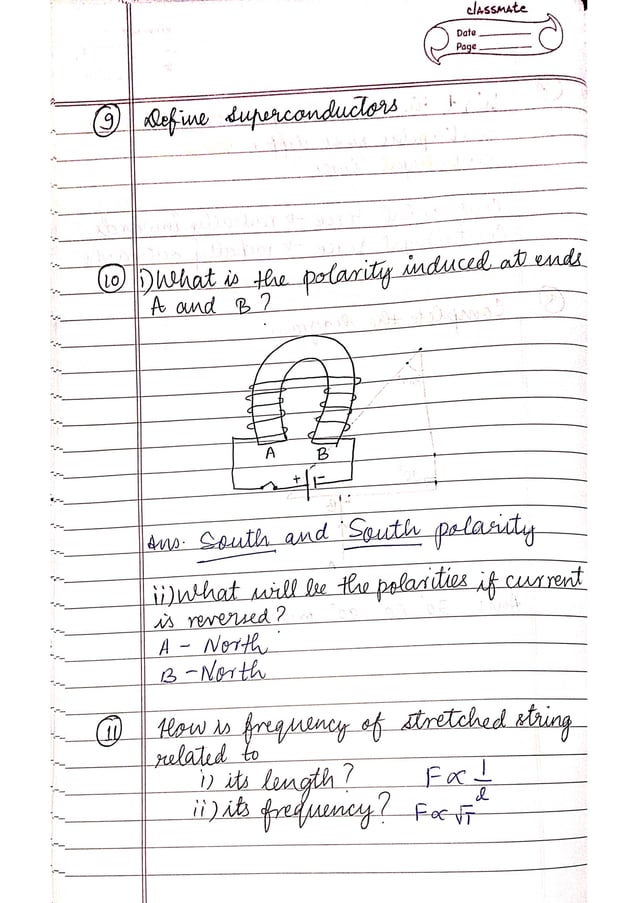 CLASSMATE
Date
Page
9 Define Superconductors
10 i) What is the polarity induced at ends
A and B?
A B
+ -
Ans. South and South polarity
ii) What will be the polarities if current
is reversed?
A - North
B - North
11 How is frequency of stretched string
related to
i) its length? F ∝ 1/l
ii) its frequency? F ∝ √T